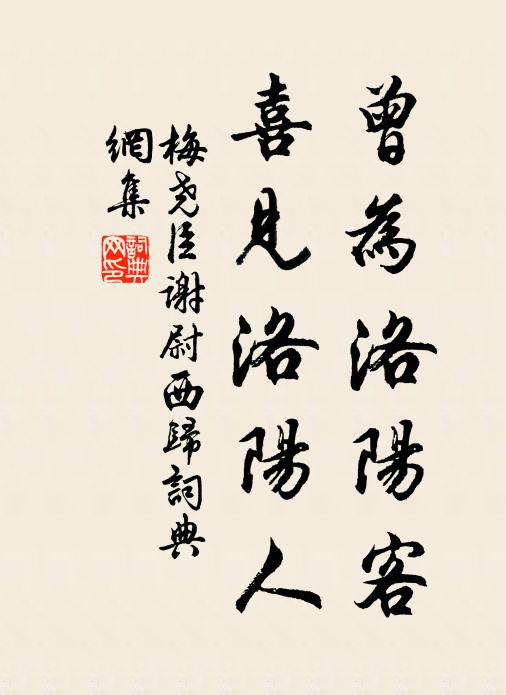 曾為洛陽客
喜見洛陽人
梅堯臣謝尉西歸詞典
網集
詞典網印